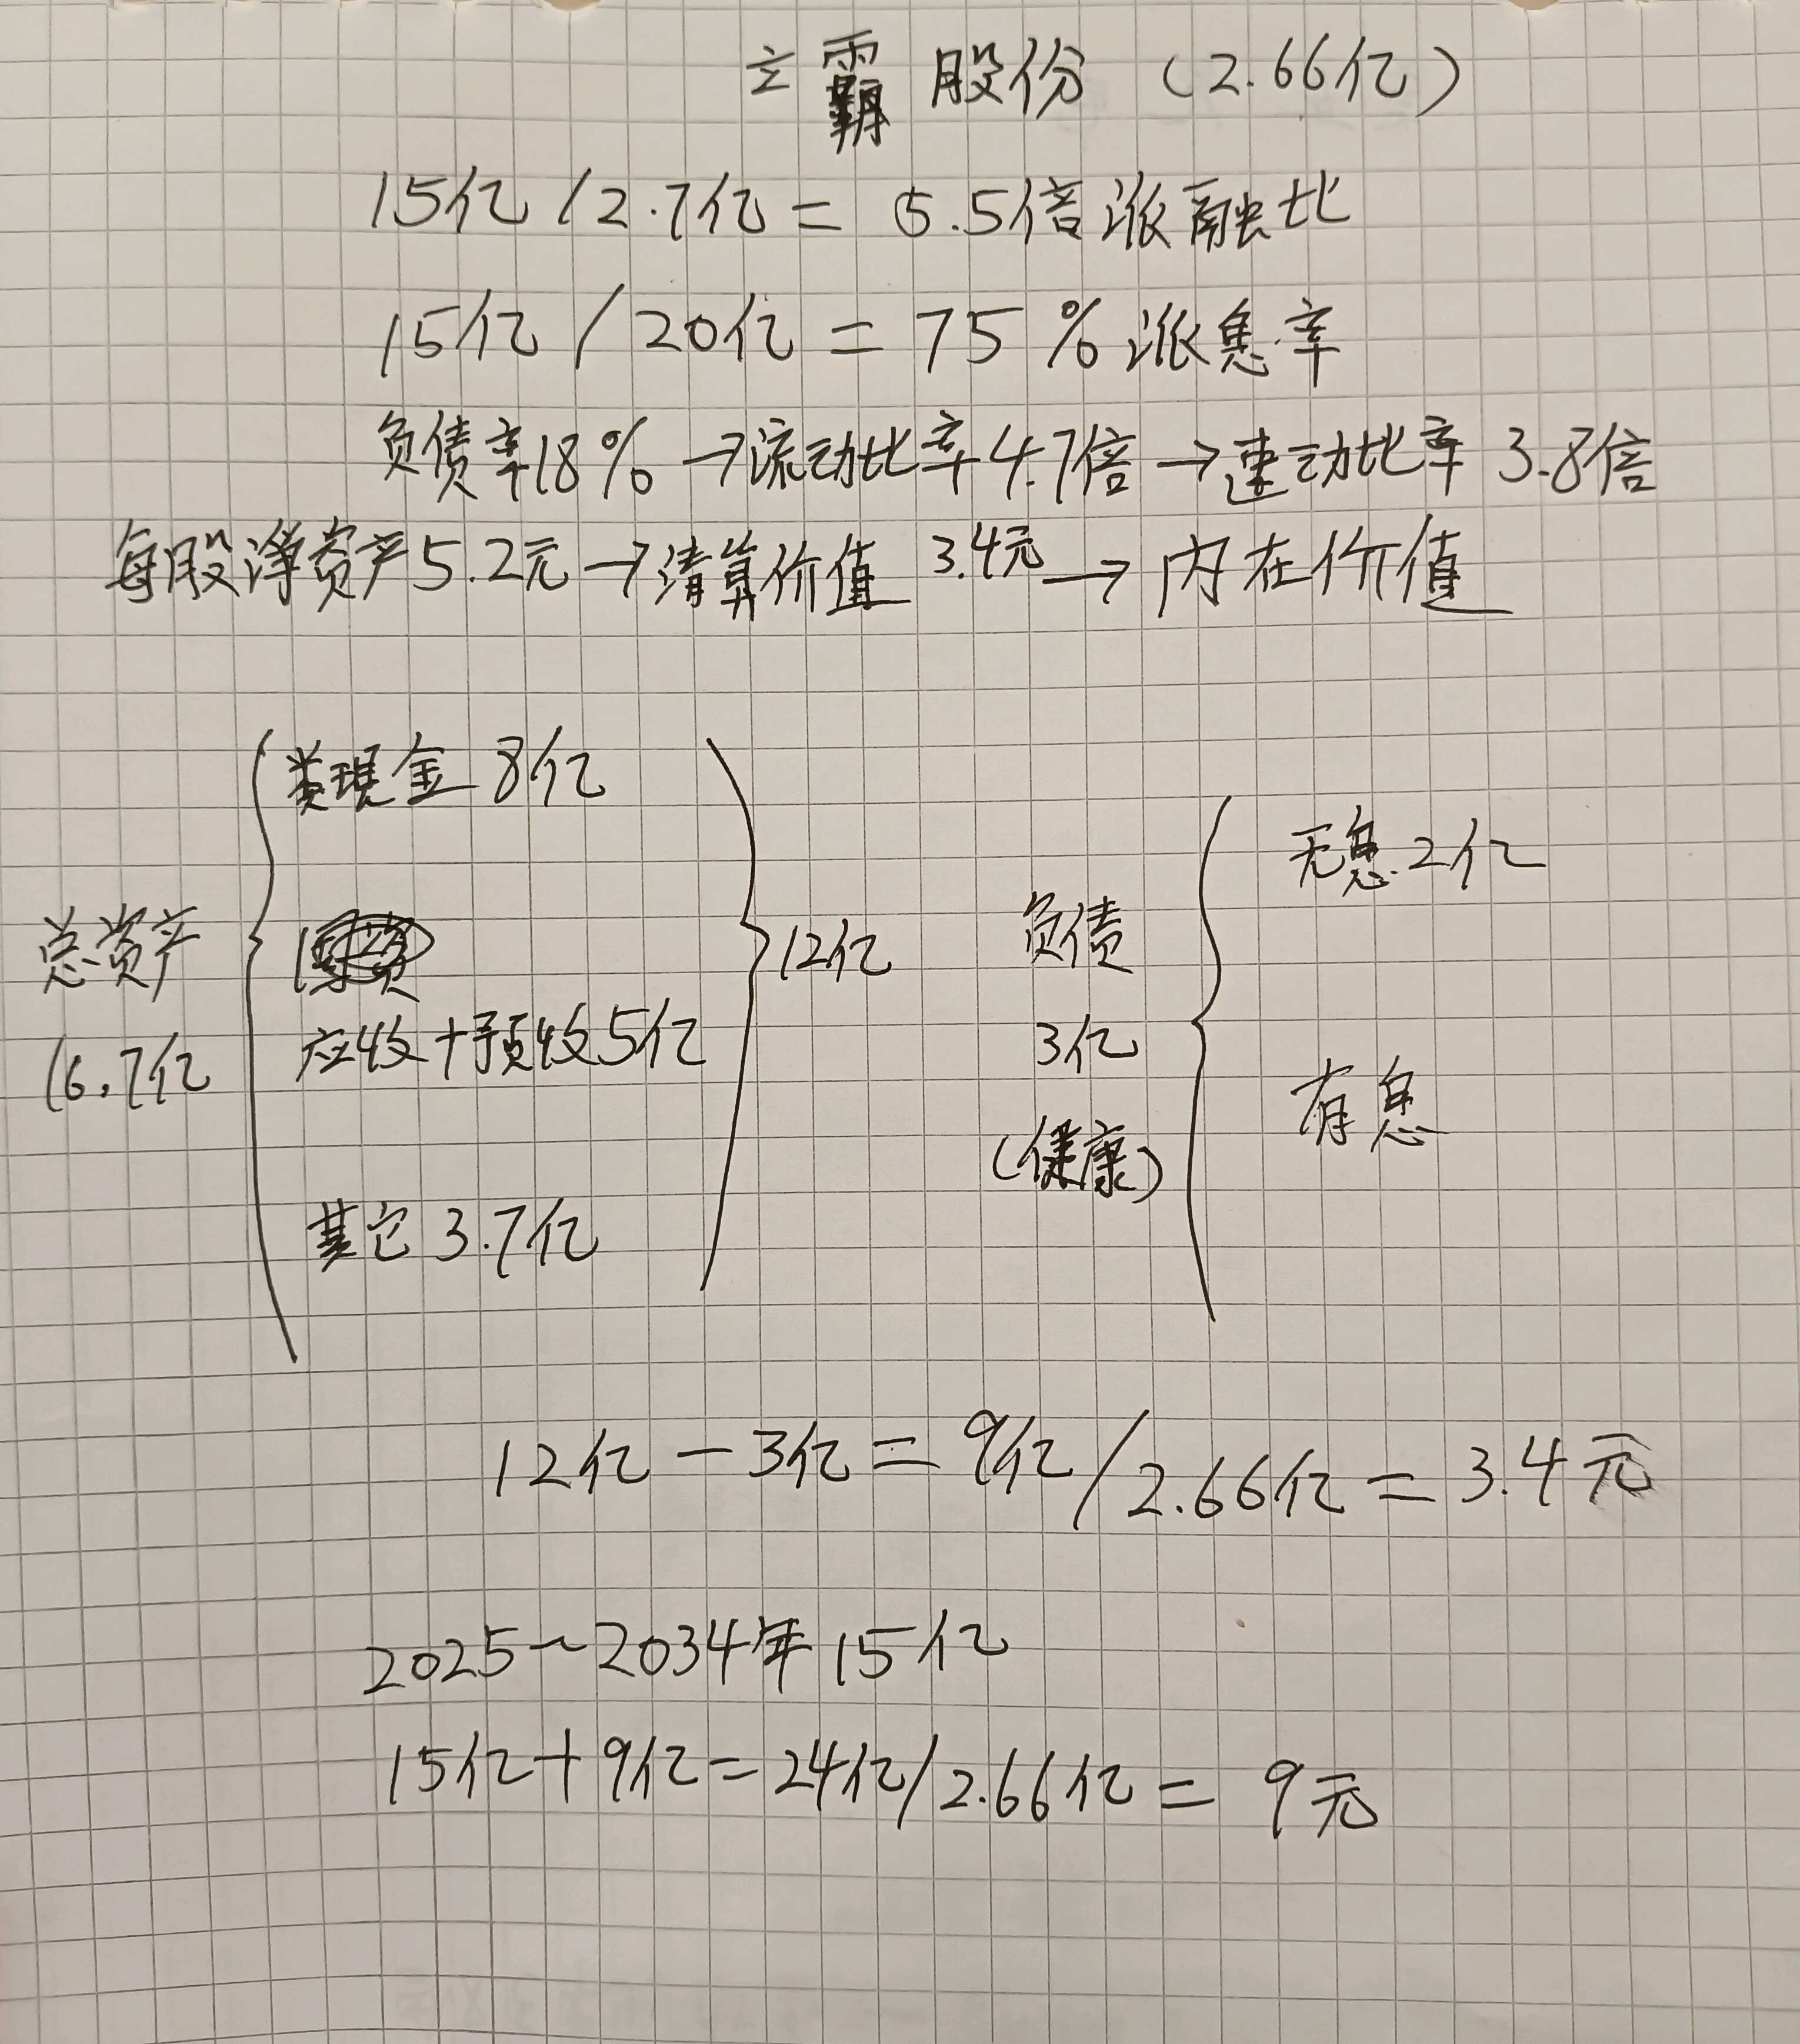 立霸股份（2.66亿）
15亿/2.7亿=5.5倍派融比
15亿/20亿=75%派息率
负债率18%→流动比率4.7倍→速动比率3.8倍
每股净资产5.2元→清算价值3.4元→内在价值
类现金8亿
无息2亿
总资产
12亿
负债
16.7亿
应收+预收5亿
3亿
有息
(健康)
其它3.7亿
12亿-3亿=9亿/2.66亿=3.4元
2025~2034年15亿
15亿+9亿=24亿/2.66亿=9元